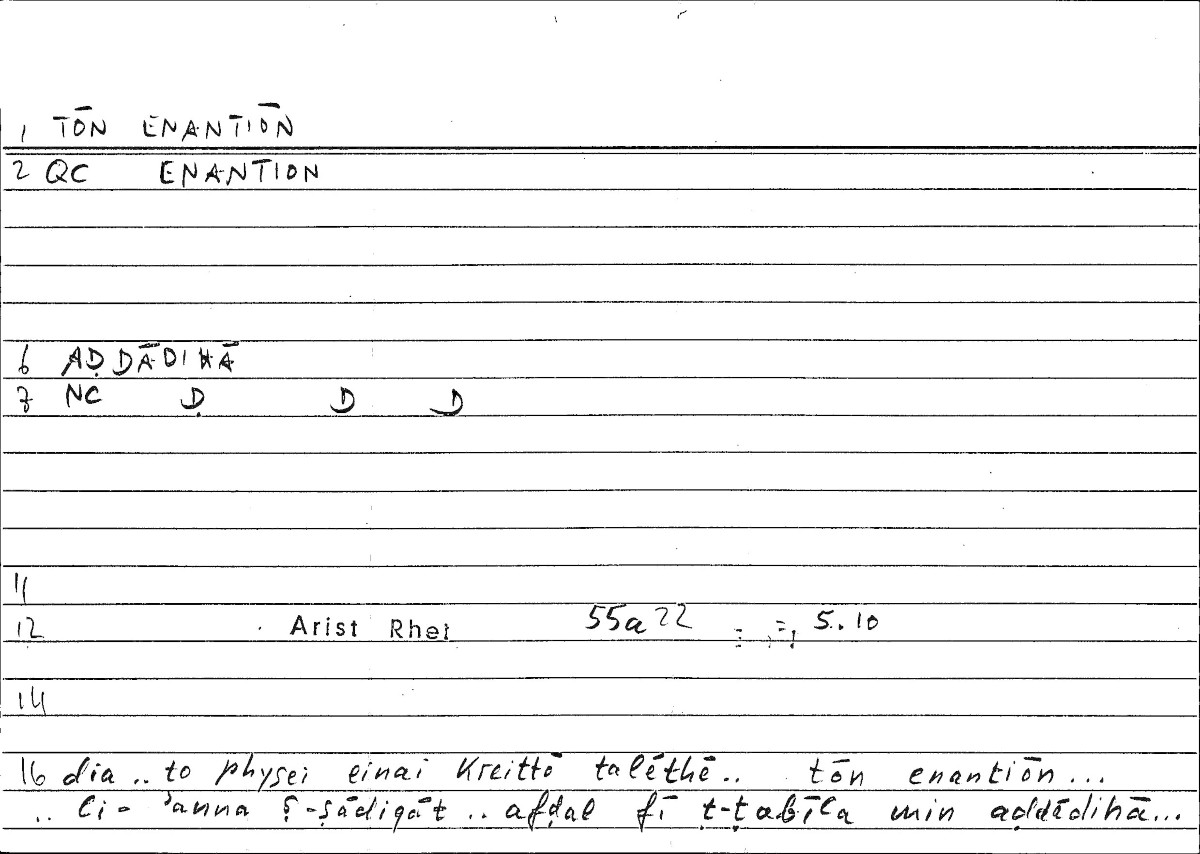 1 TŌN ENANTIŌN
2 QC ENANTION
6 AḌDĀDIHĀ
7 NC Ḍ D D
11
12 Arist Rhet 55a22 5.10
14
16 dia .. to physei einai kreittō talēthē .. tōn enantiōn ...
.. li-ʾanna ṣ-ṣādiqāt .. afḍal fī ṭ-ṭabīʿa min aḍdādihā ...